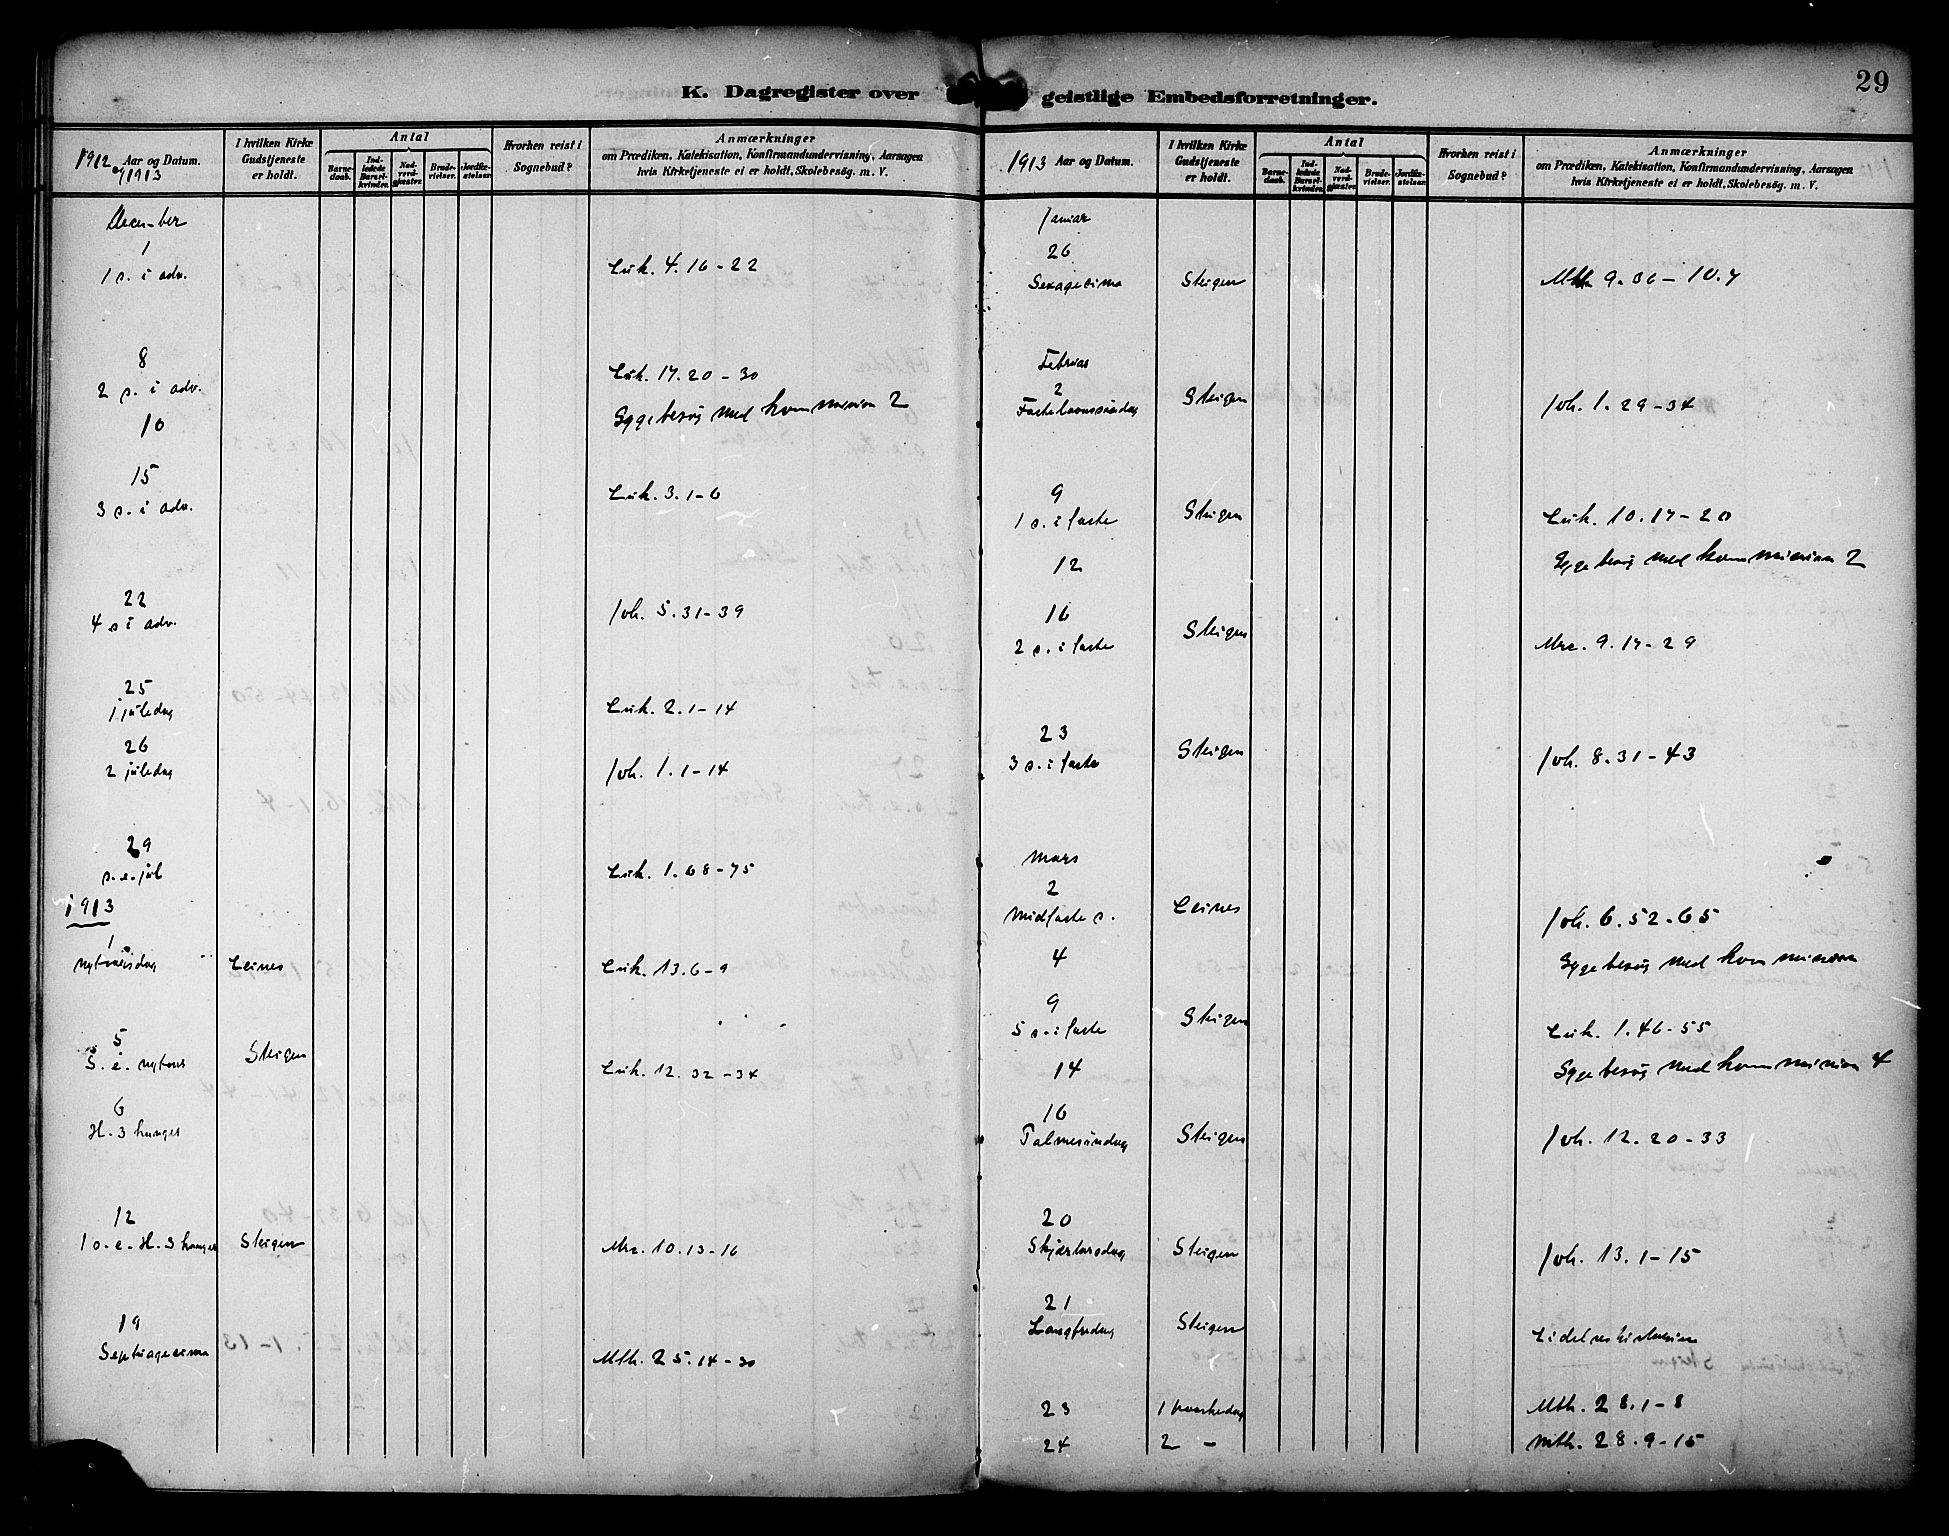 29
K. Dagregister over geistlige Embedsforretninger.
1912 og 1913 Aar og Datum.
I hvilken Kirke Gudstjeneste er holdt.
Antal
Barnedaab.
Indledede Barselkvinder.
Nadverdgjæster.
Brudevielser.
Jordfæstelser.
Hvorhen reist i Sognebud?
Anmærkninger
om Prædiken, Katekisation, Konfirmandundervisning, Aarsagen
hvis Kirketjeneste ei er holdt, Skolebesög. m. V.
December
1
1 s. i adv. Luk. 4.16-22
8
2 s. i adv. Luk. 17.20-30
10 Sygebesøg med kommunion 2
15
3 s. i adv. Luk. 3.1-6
22
4 s i adv. Joh. 5.31-39
25
1 juledag Luk. 2.1-14
26
2 juledag Joh. 1.1-14
29
s.e. jul Luk. 1.68-75
1913
1
nytaarsdag Leines Luk. 13.6-9
5
S. e. nytaar Steigen Luk. 12.32-34
6
H. 3 kunger
12
1 s. e. H. 3 kunger Steigen Mrc. 10.13-16
19
Septuagesima Mth. 25.14-30
1913 Aar og Datum.
I hvilken Kirke Gudstjeneste er holdt.
Antal
Barnedaab.
Indledede Barselkvinder.
Nadverdgjæster.
Brudevielser.
Jordfæstelser.
Hvorhen reist i Sognebud?
Anmærkninger
om Prædiken, Katekisation, Konfirmandundervisning, Aarsagen
hvis Kirketjeneste ei er holdt, Skolebesög. m. V.
Januar
26
Sexagesima Steigen Mth 9.36-10.7
Februar
2
Fastelavnssøndag Steigen Joh. 1.29-34
9
1 s. i faste Steigen Luk. 10.17-20
12 Sygebesøg med kommunion 2
16
2 s. i faste Steigen Mrc. 9.17-29
23
3 s. i faste Steigen Joh. 8.31-43
Mars
2
Midfaste s. Leines Joh. 6.52-65
4 Sygebesøg med kommunion
9
5 s. i faste Steigen Luk. 1.46-55
14 Sygebesøg med kommunion 4
16
Palmesøndag Steigen Joh. 12.20-33
20
Skjærtorsdag Steigen Joh. 13.1-15
21
Langfredag Steigen Lidelseshistorien
23 1 paaskedag Mth. 28.1-8
24 2 - Mth. 28.9-15